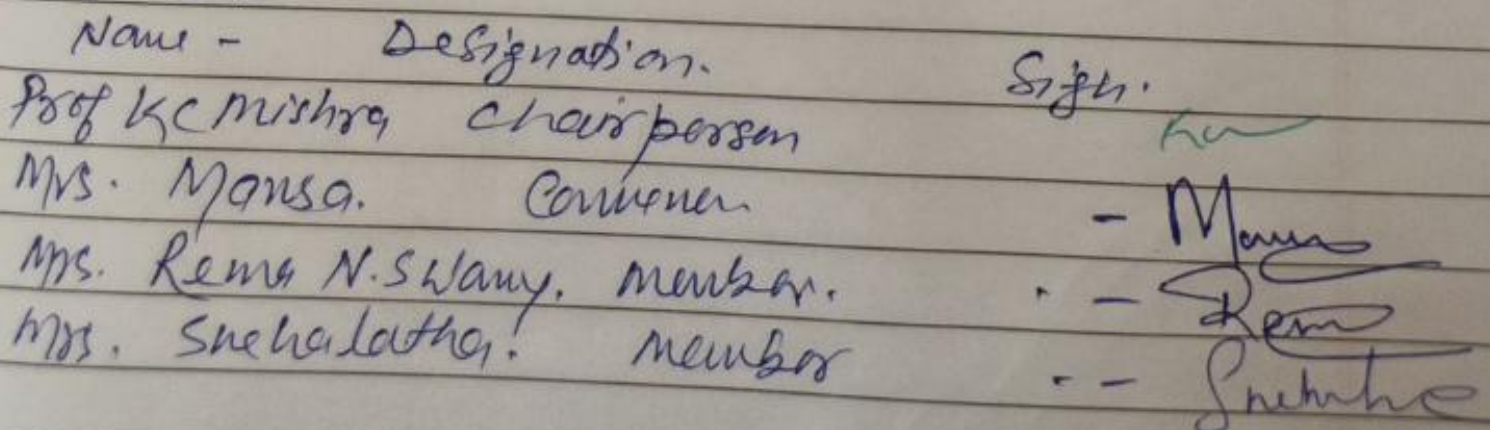 Name - Designation. Sign.
Prof KC Mishra Chairperson
Mrs. Mansa. Convener - Mansa
Mrs. Rema N. Swamy. Member. . - Rema
Mrs. Snehalatha. Member . -